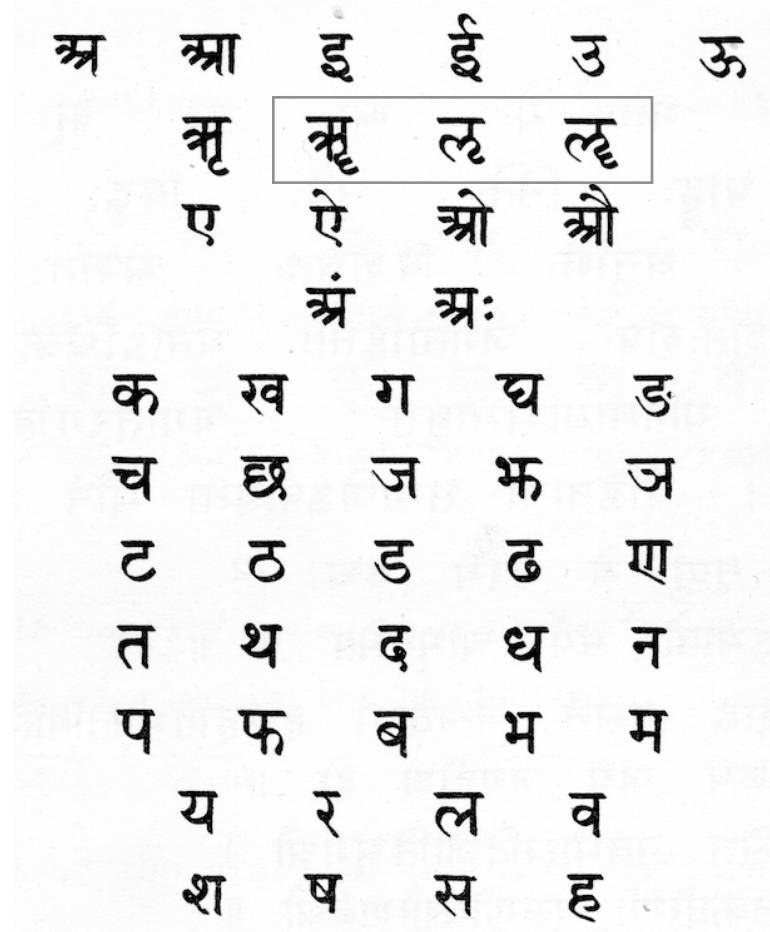 अ आ इ ई उ ऊ
ऋ ॠ ऌ ॡ
ए ऐ ओ औ
अं अः
क ख ग घ ङ
च छ ज झ ञ
ट ठ ड ढ ण
त थ द ध न
प फ ब भ म
य र ल व
श ष स ह